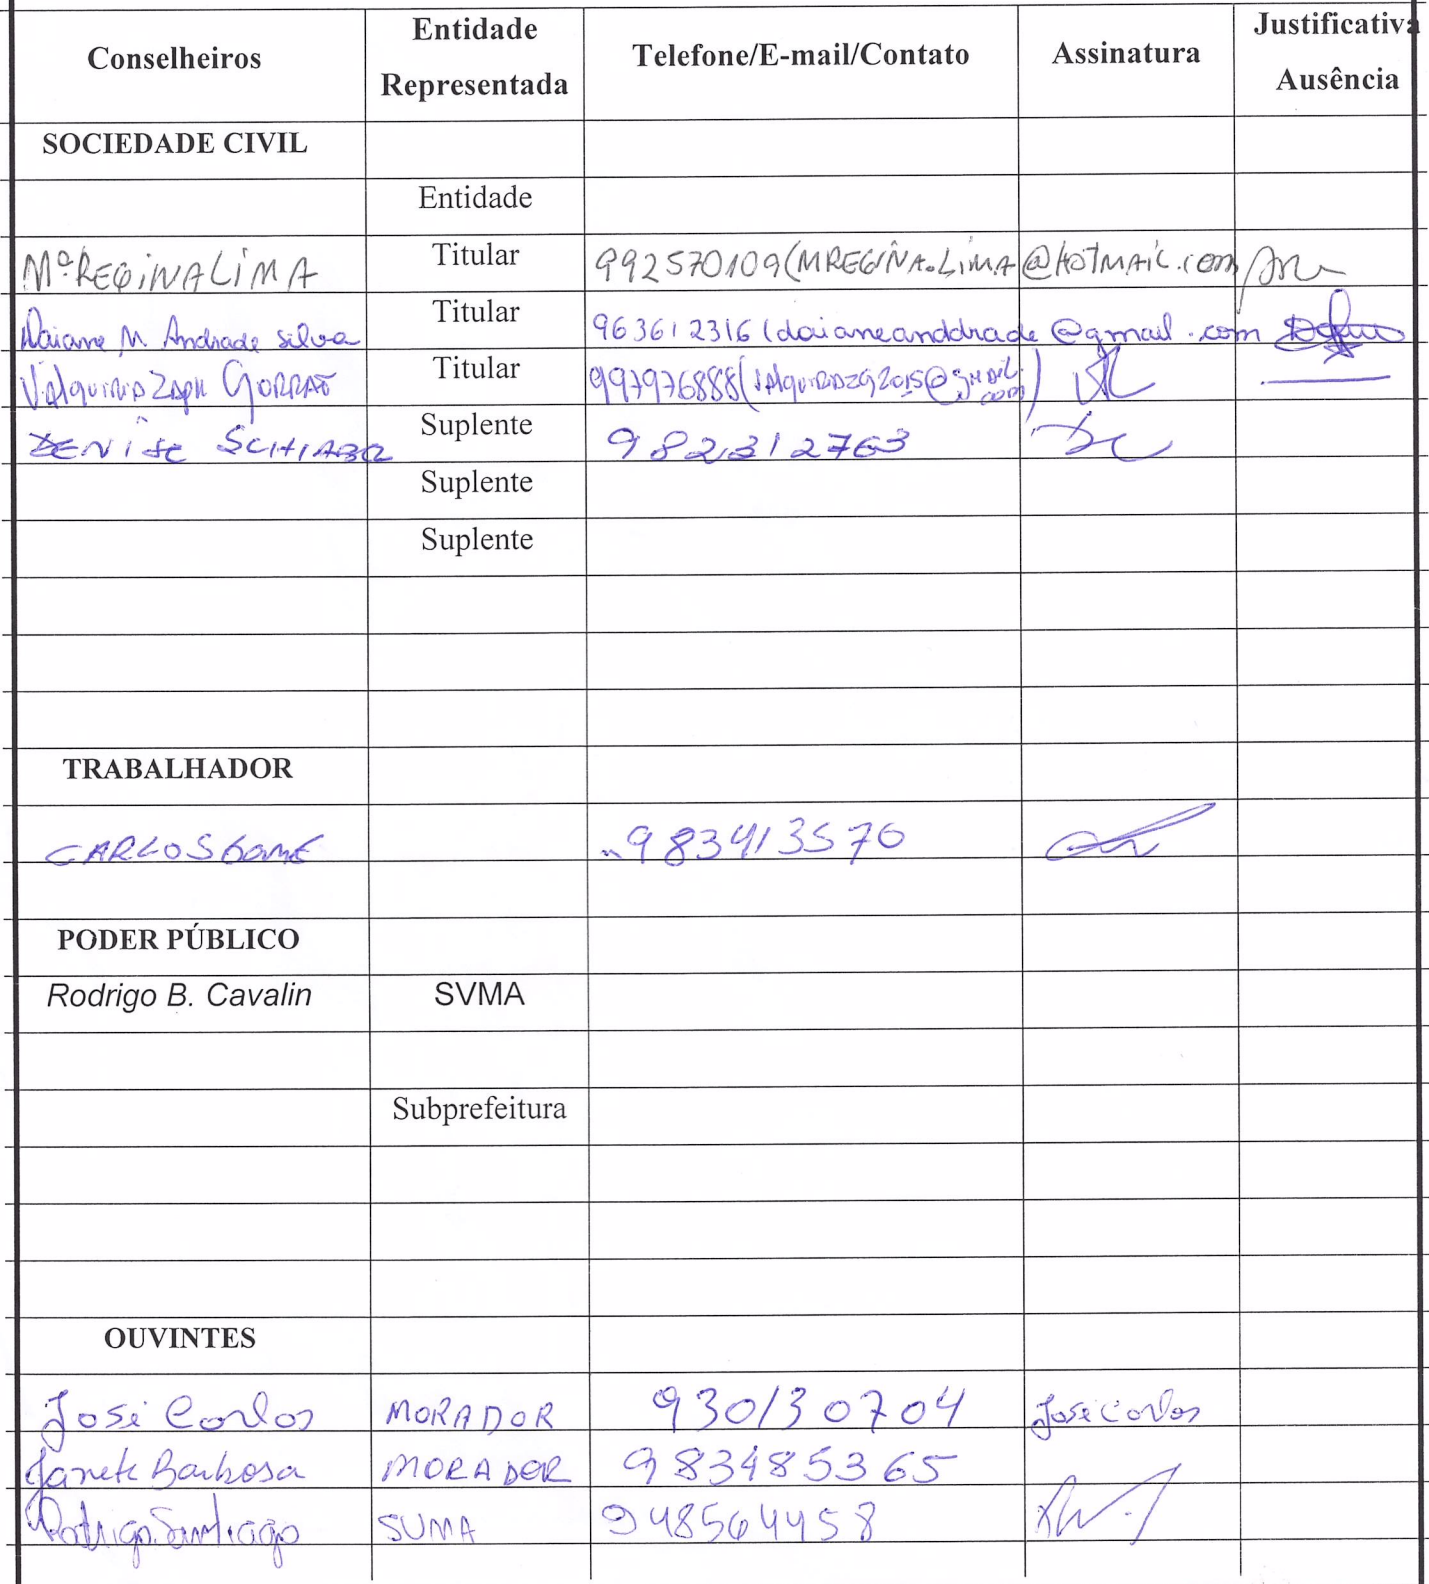 Conselheiros Entidade Representada Telefone/E-mail/Contato Assinatura Justificativa Ausência
SOCIEDADE CIVIL
Entidade
Mª REGINA LIMA Titular 992570109 (MREGINA.LIMA@HOTMAIL.COM
Daiane M. Andrade Silva Titular 963612316 (daianeanddrade@gmail.com
Titular 997976888 (
DENISE Suplente 982312763
Suplente
Suplente
TRABALHADOR
CARLOS 983413570
PODER PÚBLICO
Rodrigo B. Cavalin SVMA
Subprefeitura
OUVINTES
José Carlos MORADOR 930130704 José Carlos
Janete Barbosa MORADOR 983485365
Rodrigo Santiago SVMA 948564458